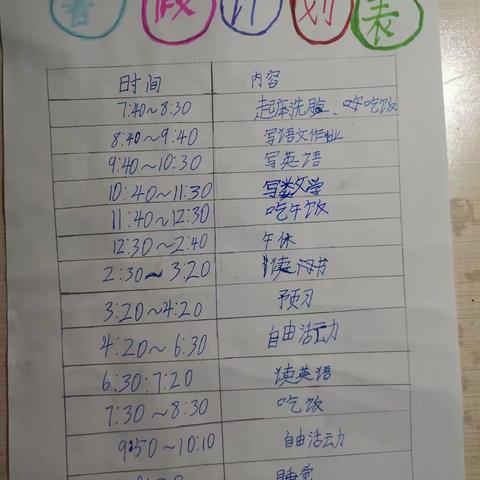 暑假计划表
时间 内容
7:40~8:30 起床洗脸、吃饭
8:40~9:40 写语文作业
9:40~10:30 写英语
10:40~11:30 写数学
11:40~12:30 吃午饭
12:30~2:40 午休
2:30~3:20 读
3:20~4:20 预习
4:20~6:30 自由活动
6:30:7:20 读英语
7:30~8:30 吃饭
9:50~10:10 自由活动
睡觉